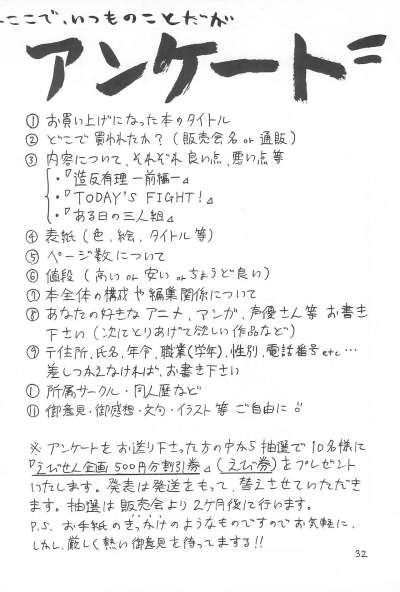 ここで、いつものことだが
アンケート
① お買い上げになった本のタイトル
② どこで買われたか?(販売会名 or 通販)
③ 内容について、それぞれ良い点、悪い点等
・『造反有理 ー前編ー』
・『TODAY'S FIGHT!』
・『ある日の三人組』
④ 表紙(色、絵、タイトル等)
⑤ ページ数について
⑥ 値段(高い or 安い or ちょうど良い)
⑦ 本全体の構成や編集関係について
⑧ あなたの好きなアニメ、マンガ、声優さん等お書き
下さい(次にとりあげて欲しい作品など)
⑨ 〒住所、氏名、年令、職業(学年)、性別、電話番号etc…
差しつかえなければ、お書き下さい
⑩ 所属サークル・同人歴など
⑪ 御意見・御感想・文句・イラスト等 ご自由に
※ アンケートをお送り下さった方の中から抽選で10名様に
『えびせん企画 500円分割引券』(えび券)をプレゼント
いたします。発表は発送をもって、替えさせていただき
ます。抽選は販売会より2ヶ月後に行います。
P.S. お手紙のきっかけのようなものですのでお気軽に、
しかし、厳しく熱い御意見を待ってまする!!
32